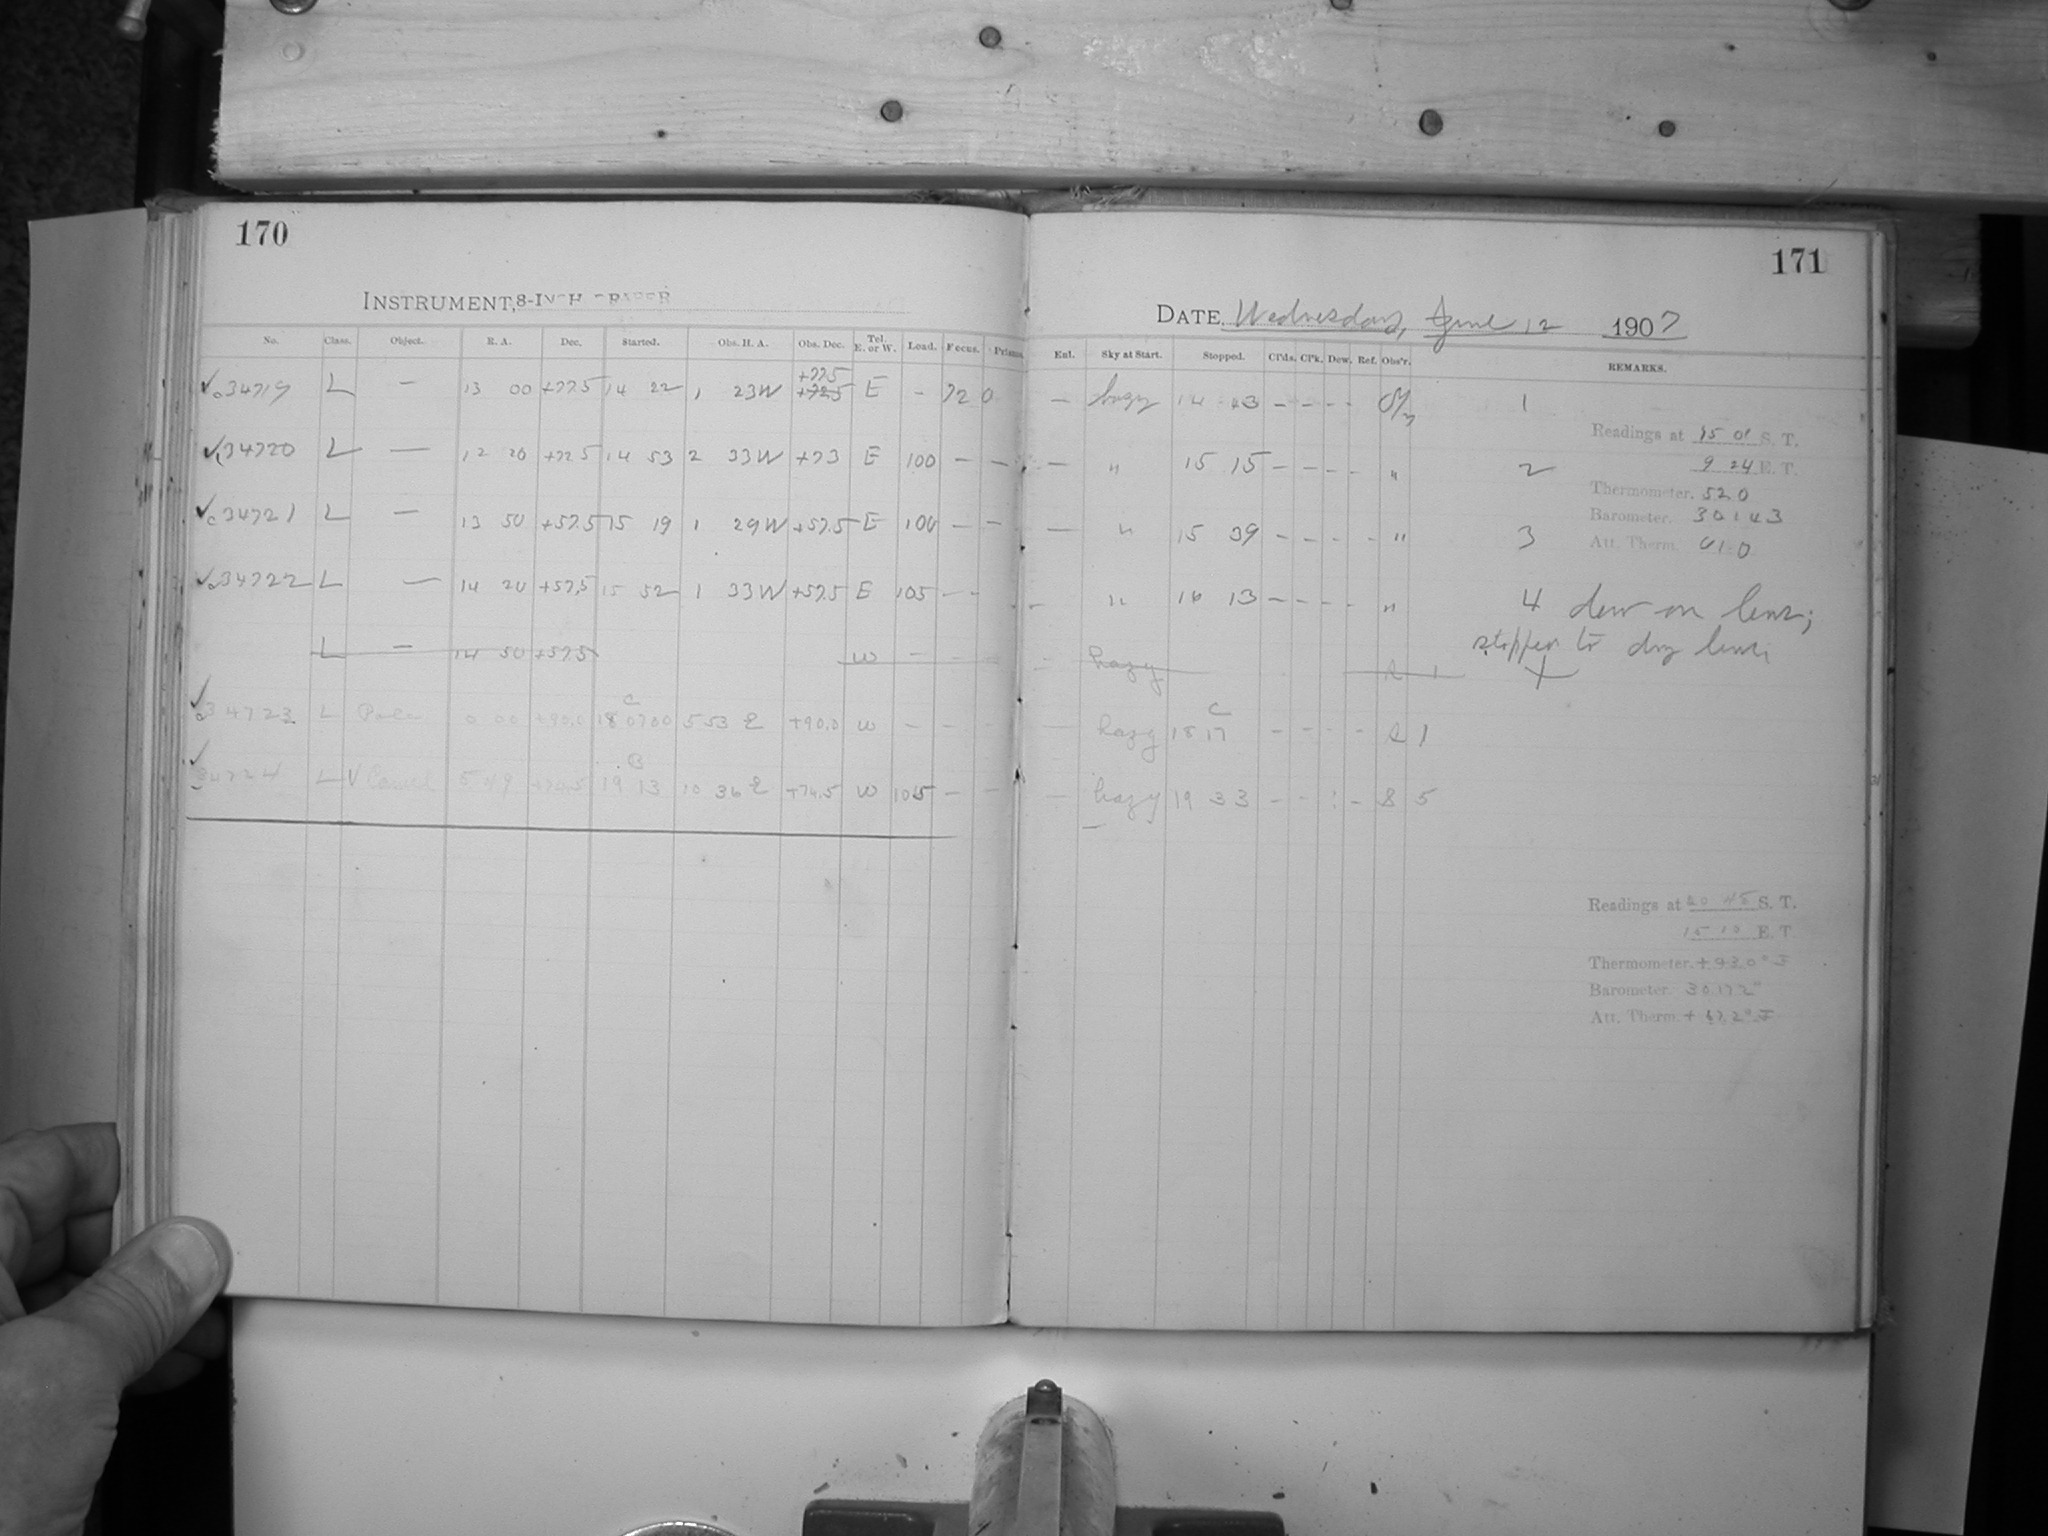 170
INSTRUMENT, 8-INCH DRAPER
No. Class. Object. R. A. Dec. Started. Obs. H. A. Obs. Dec. Tel. E. or W. Load. Focus. Prisms.
34719 L — 13 00 +77.5 14 22 1 23W +77.5 +72.5 E - 720
34720 L — 12 20 +72.5 14 53 2 33W +73 E 100 — —
34721 L — 13 50 +57.5 15 19 1 29W +57.5 E 100 — —
34722 L — 14 20 +57.5 15 52 1 33W +57.5 E 105 - -
L — 14 50 +57.5 W — -
34723 L Pole 0 00 +90.0 18 0700 C 5 53 E +90.0 W — - -
34724 L V Camel 5 49 +74.5 19 13 B 10 36 E +74.5 W 105 — -
171
DATE, Wednesday, June 12 1907
Enl. Sky at Start. Stopped. Cl'ds. Cl'k. Dew. Ref. Obs'r. REMARKS.
— hazy 14 43 - - - - 1
— " 15 15 - - - - " 2
— " 15 39 - - - - " 3
- " 16 13 - - - - " 4 dew on lens;
stopped to dry lens.
- hazy
— hazy 18 17 C - - - - 1
— hazy 19 33 - - : - 8 5
Readings at 15 01 S. T.
9 24 E. T.
Thermometer. 52.0
Barometer. 30.143
Att. Therm. 61.0
Readings at 20 45 S. T.
15 10 E. T.
Thermometer.
Barometer. 30.172"
Att. Therm.